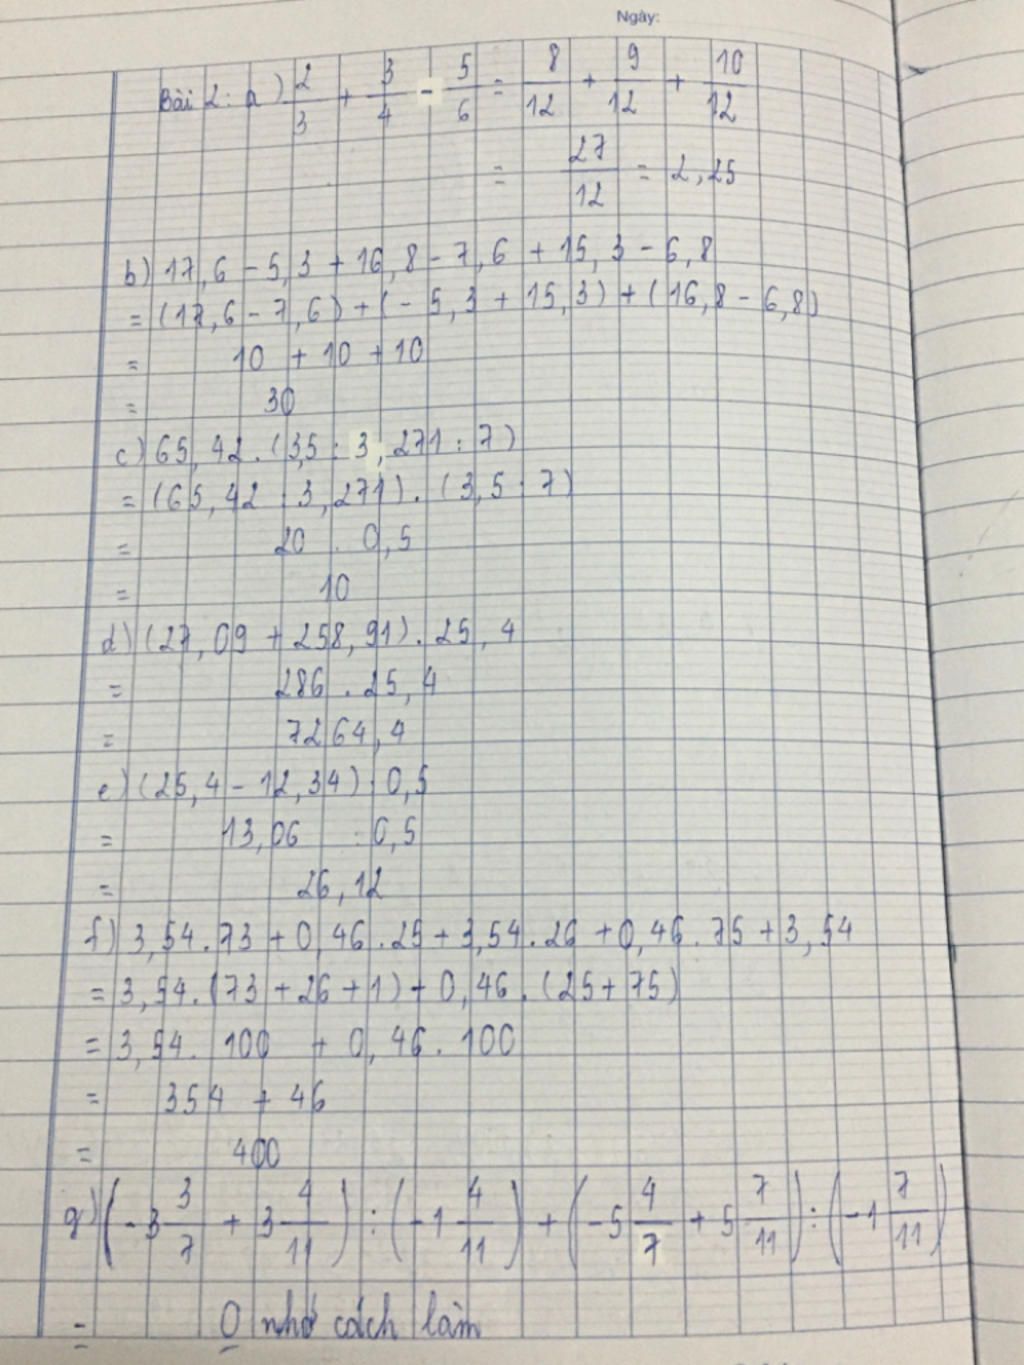 Ngày:
Bài 2: a) 2/3 + 3/4 - 5/6 = 8/12 + 9/12 + 10/12
= 27/12 = 2,25
b) 17,6 - 5,3 + 16,8 - 7,6 + 15,3 - 6,8
= (17,6 - 7,6) + (- 5,3 + 15,3) + (16,8 - 6,8)
= 10 + 10 + 10
= 30
c) 65,42 . (3,5 : 3,271 : 7)
= (65,42 : 3,271) . (3,5 : 7)
= 20 . 0,5
= 10
d) (27,09 + 258,91) . 25,4
= 286 . 25,4
= 7264,4
e) (25,4 - 12,34) : 0,5
= 13,06 : 0,5
= 26,12
f) 3,54 . 73 + 0,46 . 25 + 3,54 . 26 + 0,46 . 75 + 3,54
= 3,54 . (73 + 26 + 1) + 0,46 . (25 + 75)
= 3,54 . 100 + 0,46 . 100
= 354 + 46
= 400
g) (-3 3/7 + 3 4/11) : (-1 4/11) + (-5 4/7 + 5 7/11) : (-1 7/11)
= O nhớ cách làm